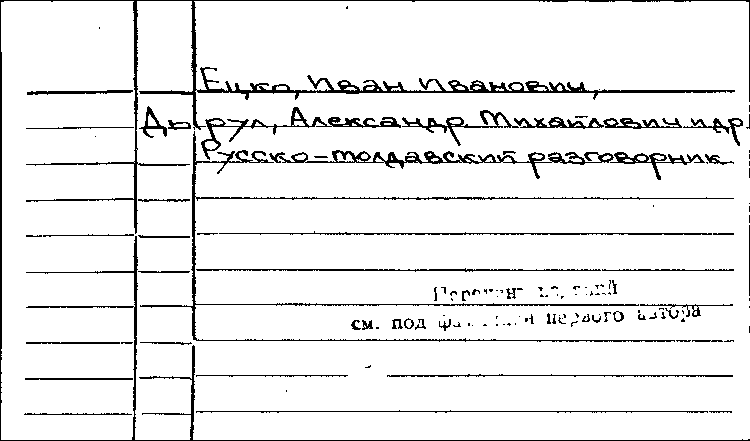 Ецко, Иван Иванович,
Дырул, Александр Михайлович и др
Русско-молдавский разговорник
см. под первого автора